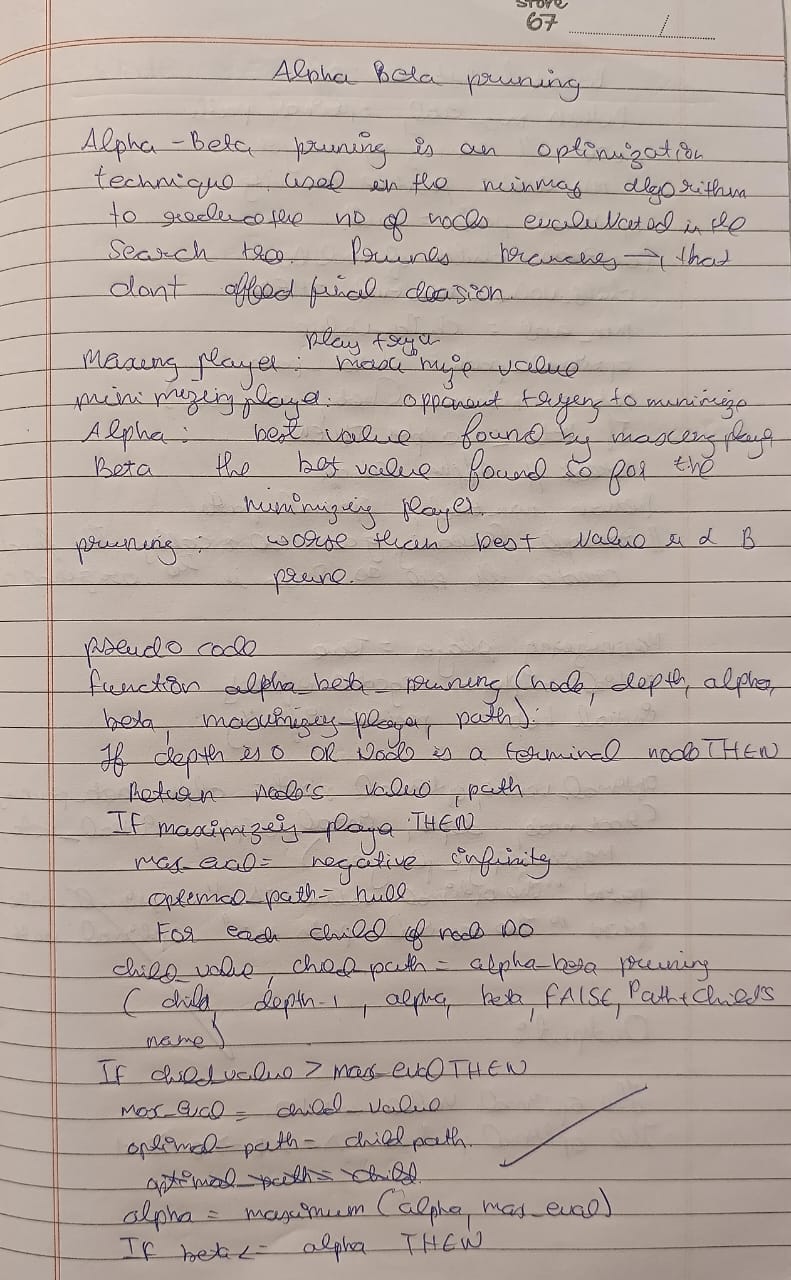 Store
67 /
Alpha Beta pruning
Alpha-Beta pruning is an optimization
technique used in the minmax algorithm
to reduce the no of nodes evaluvated in the
search tree. Prunes branches → that
dont affect final decision.
play tryer
Maxing player: maximize value
minimizing player: opponent trying to minimize
Alpha: best value found by maxing player
Beta the best value found so for the
minimizing player.
pruning: worse than best value α B
prune.
pseudo code
function alpha_beta_pruning (node, depth, alpha,
beta, maximizing_player, path):
If depth is 0 OR Node is a terminal node THEN
Return node's value, path
If maximizing_player THEN
max_eval = negative infinity
optimal_path = null
For each child of node DO
child_value, child_path = alpha-beta pruning
(child, depth-1, alpha, beta, FAlSE, Path+Child's
name)
If child value > max_eval THEN
Max_eval = child_value
optimal_path = child path.
optimal_path = child.
alpha = maximum (alpha, max_eval)
If beta <= alpha THEN